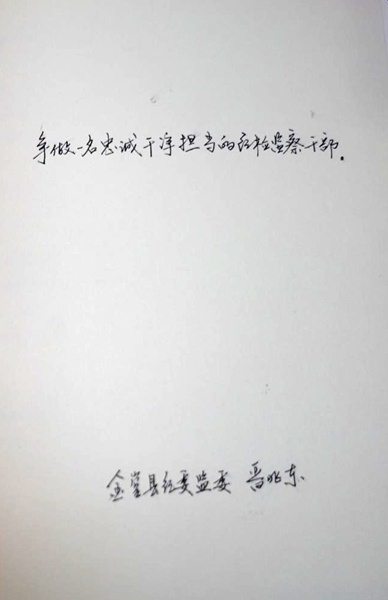 争做一名忠诚干净担当的纪检监察干部.
金寨县纪委监委 晋兆东